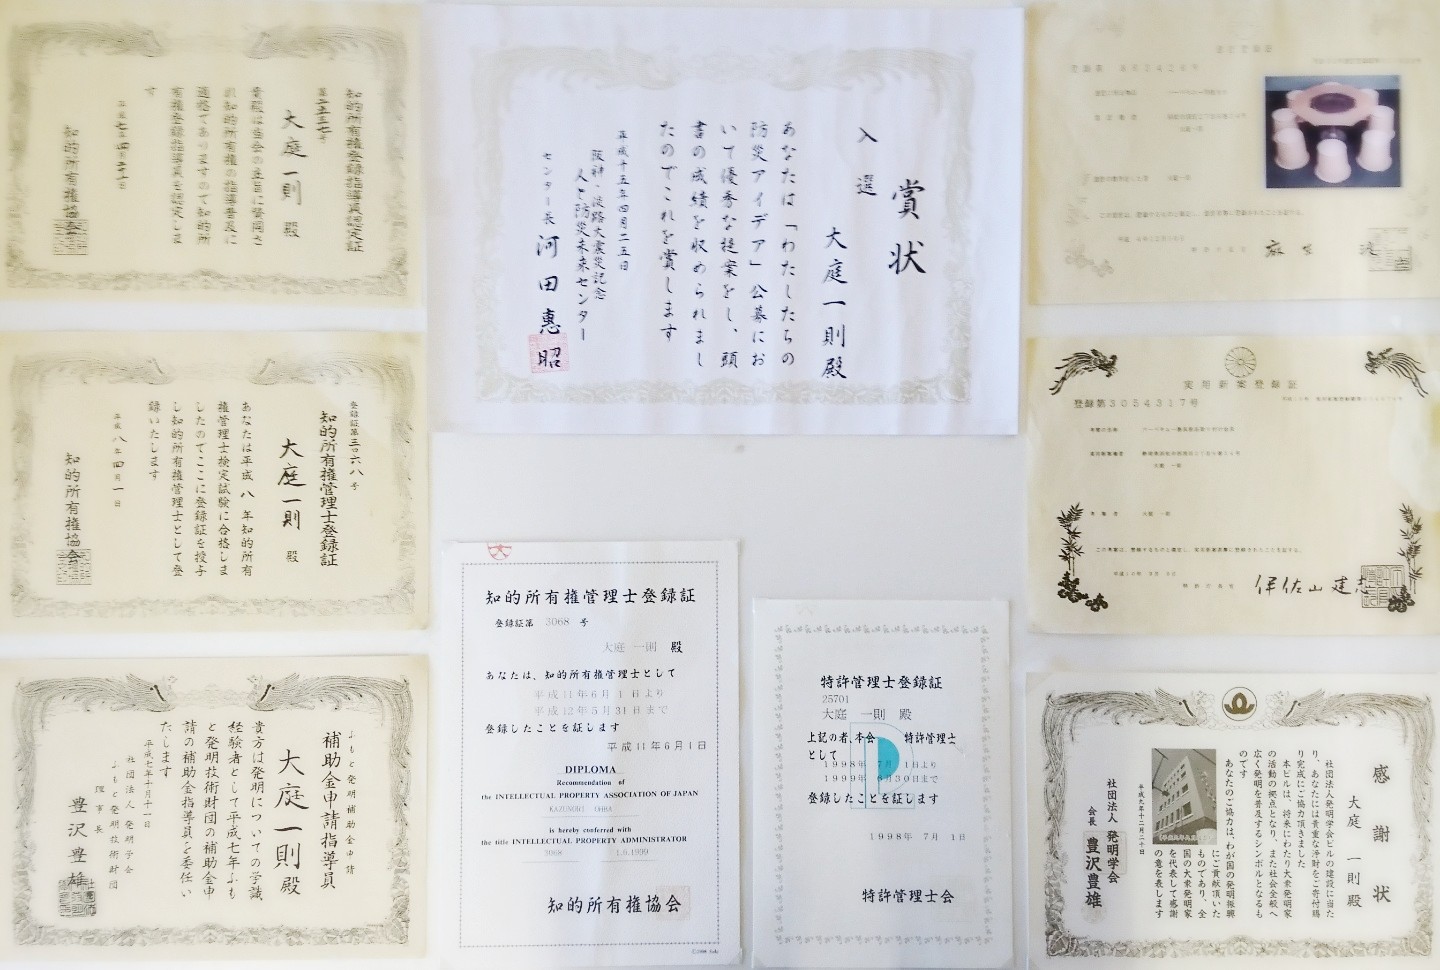 知的所有権登録指導員認定証
第二三七号
大庭一則 殿
貴殿は当会の主旨に賛同さ
れ知的所有権の指導普及に
適格でありますので知的所
有権登録指導員を認定しま
す
平成七年四月二十一日
知的所有権協会
賞状
入選
大庭一則殿
あなたは「わたしたちの
防災アイデア」公募にお
いて優秀な提案をし、頭
書の成績を収められまし
たのでこれを賞します
平成十五年四月二五日
阪神・淡路大震災記念
人と防災未来センター
センター長 河田惠昭
登録証第三〇六八号
知的所有権管理士登録証
大庭一則 殿
あなたは平成八年知的所有
権管理士検定試験に合格しま
したのでここに登録証を授与
し知的所有権管理士として登
録いたします
平成八年四月一日
知的所有権協会
実用新案登録証
登録第3054317号
この考案は、登録するものと確定し、実用新案原簿に登録されたことを証する。
特許庁長官 伊佐山建志
ふもと発明補助金申請
補助金申請指導員
大庭一則殿
貴方は発明についての学識
経験者として平成七年ふも
と発明技術財団の補助金申
請の補助金指導員を委任い
たします
平成七年十月十一日
社団法人 発明学会
ふもと発明技術財団
理事長
豊沢豊雄
知的所有権管理士登録証
登録証第 3068 号
大庭 一則 殿
あなたは、知的所有権管理士として
平成11年6月1日より
平成12年5月31日まで
登録したことを証します
平成11年6月1日
DIPLOMA
Recommendation of
the INTELLECTUAL PROPERTY ASSOCIATION OF JAPAN
KAZUNORI OHBA
is hereby conferred with
the title INTELLECTUAL PROPERTY ADMINISTRATOR
3068 1.6.1999
知的所有権協会
特許管理士登録証
25701
大庭 一則 殿
上記の者、本会 特許管理士
として
1998年 7月1日より
1999年 6月30日まで
登録したことを証します
1998年 7月 1日
特許管理士会
感謝状
大庭 一則殿
社団法人発明学会ビルの建設に当た
り、あなたには貴重な浄財をご寄付賜
り完成にご協力頂きました
本ビルは、将来にわたり大衆発明家
の活動の拠点となり、また社会全般へ
広く発明を普及するシンボルとなるも
のです
あなたのご協力は、わが国の発明振興
にご貢献頂いた
ものであり、全
国の大衆発明家
を代表して感謝
の意を表します
平成九年十二月二十日
社団法人 発明学会
会長 豊沢豊雄